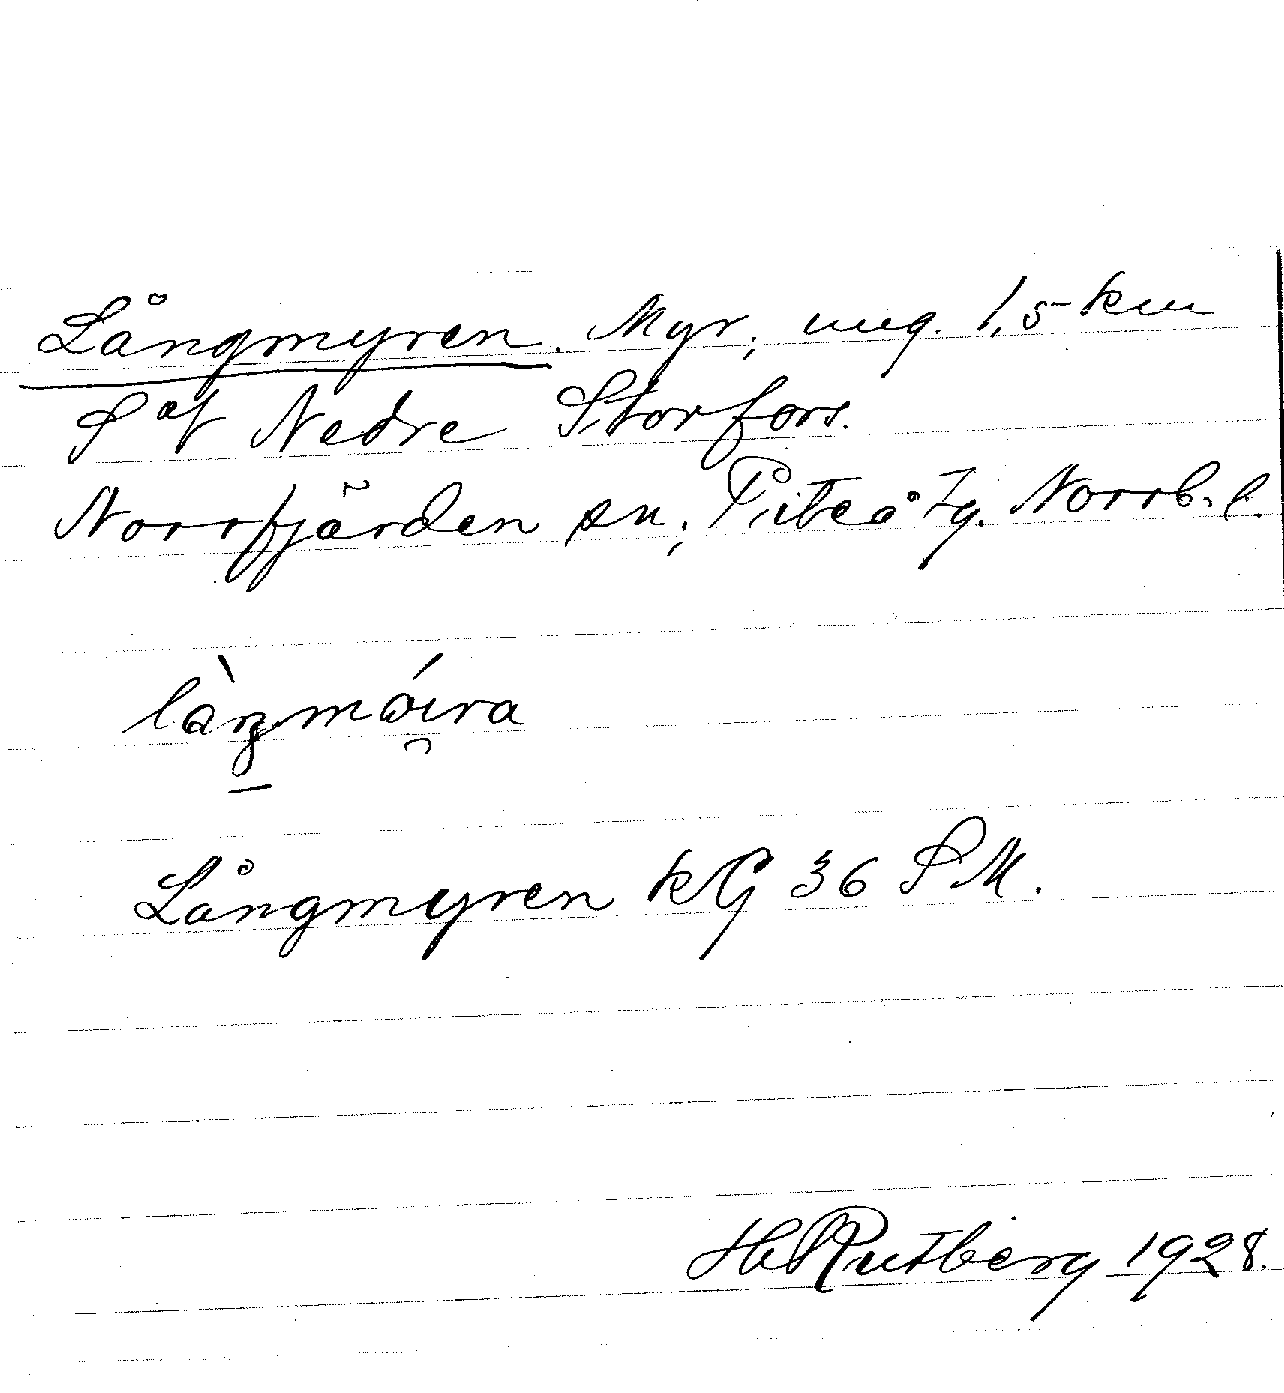 Långmyren. Myr, ung. 1,5 km
S af Nedre Storfors.
Norrfjärden sn, Piteå tg. Norrb. l.
làŋmóira
Långmyren kG 36 SM.
H Rutberg 1928.